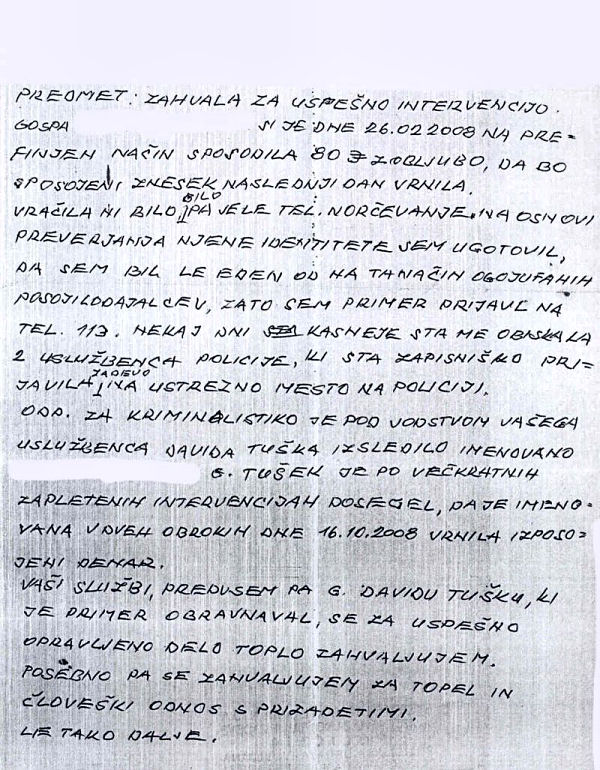 PREDMET: ZAHVALA ZA USPEŠNO INTERVENCIJO.
GOSPA SI JE DNE 26.02 2008 NA PRE=
FINJEN NAČIN SPOSODILA 80 Z OBLJUBO, DA BO
SPOSOJENI ZNESEK NASLEDNJI DAN VRNILA.
VRAČILA NI BILO, BILO PA JE LE TEL. NORČEVANJE. NA OSNOVI
PREVERJANJA NJENE IDENTITETE SEM UGOTOVIL,
DA SEM BIL LE EDEN OD NA TA NAČIN OGOJUFANIH
POSOJILODAJALCEV, ZATO SEM PRIMER PRIJAVIL NA
TEL. 113. NEKAJ DNI KASNEJE STA ME OBISKALA
2 USLUŽBENCA POLICIJE, KI STA ZAPISNIŠKO PRI=
JAVILA ZADEVO NA USTREZNO MESTO NA POLICIJI.
ODD. ZA KRIMINALISTIKO JE POD VODSTVOM VAŠEGA
USLUŽBENCA DAVIDA TUŠKA IZSLEDILO IMENOVANO
G. TUŠEK JE PO VEČKRATNIH
ZAPLETENIH INTERVENCIJAH DOSEGEL, DA JE IMENO=
VANA V DVEH OBROKIH DNE 16.10.2008 VRNILA IZPOSO=
JENI DENAR.
VAŠI SLUŽBI, PREDVSEM PA G. DAVIDU TUŠKU, KI
JE PRIMER OBRAVNAVAL, SE ZA USPEŠNO
OPRAVLJENO DELO TOPLO ZAHVALJUJEM.
POSEBNO PA SE ZAHVALJUJEM ZA TOPEL IN
ČLOVEŠKI ODNOS S PRIZADETIMI.
LE TAKO DALJE.